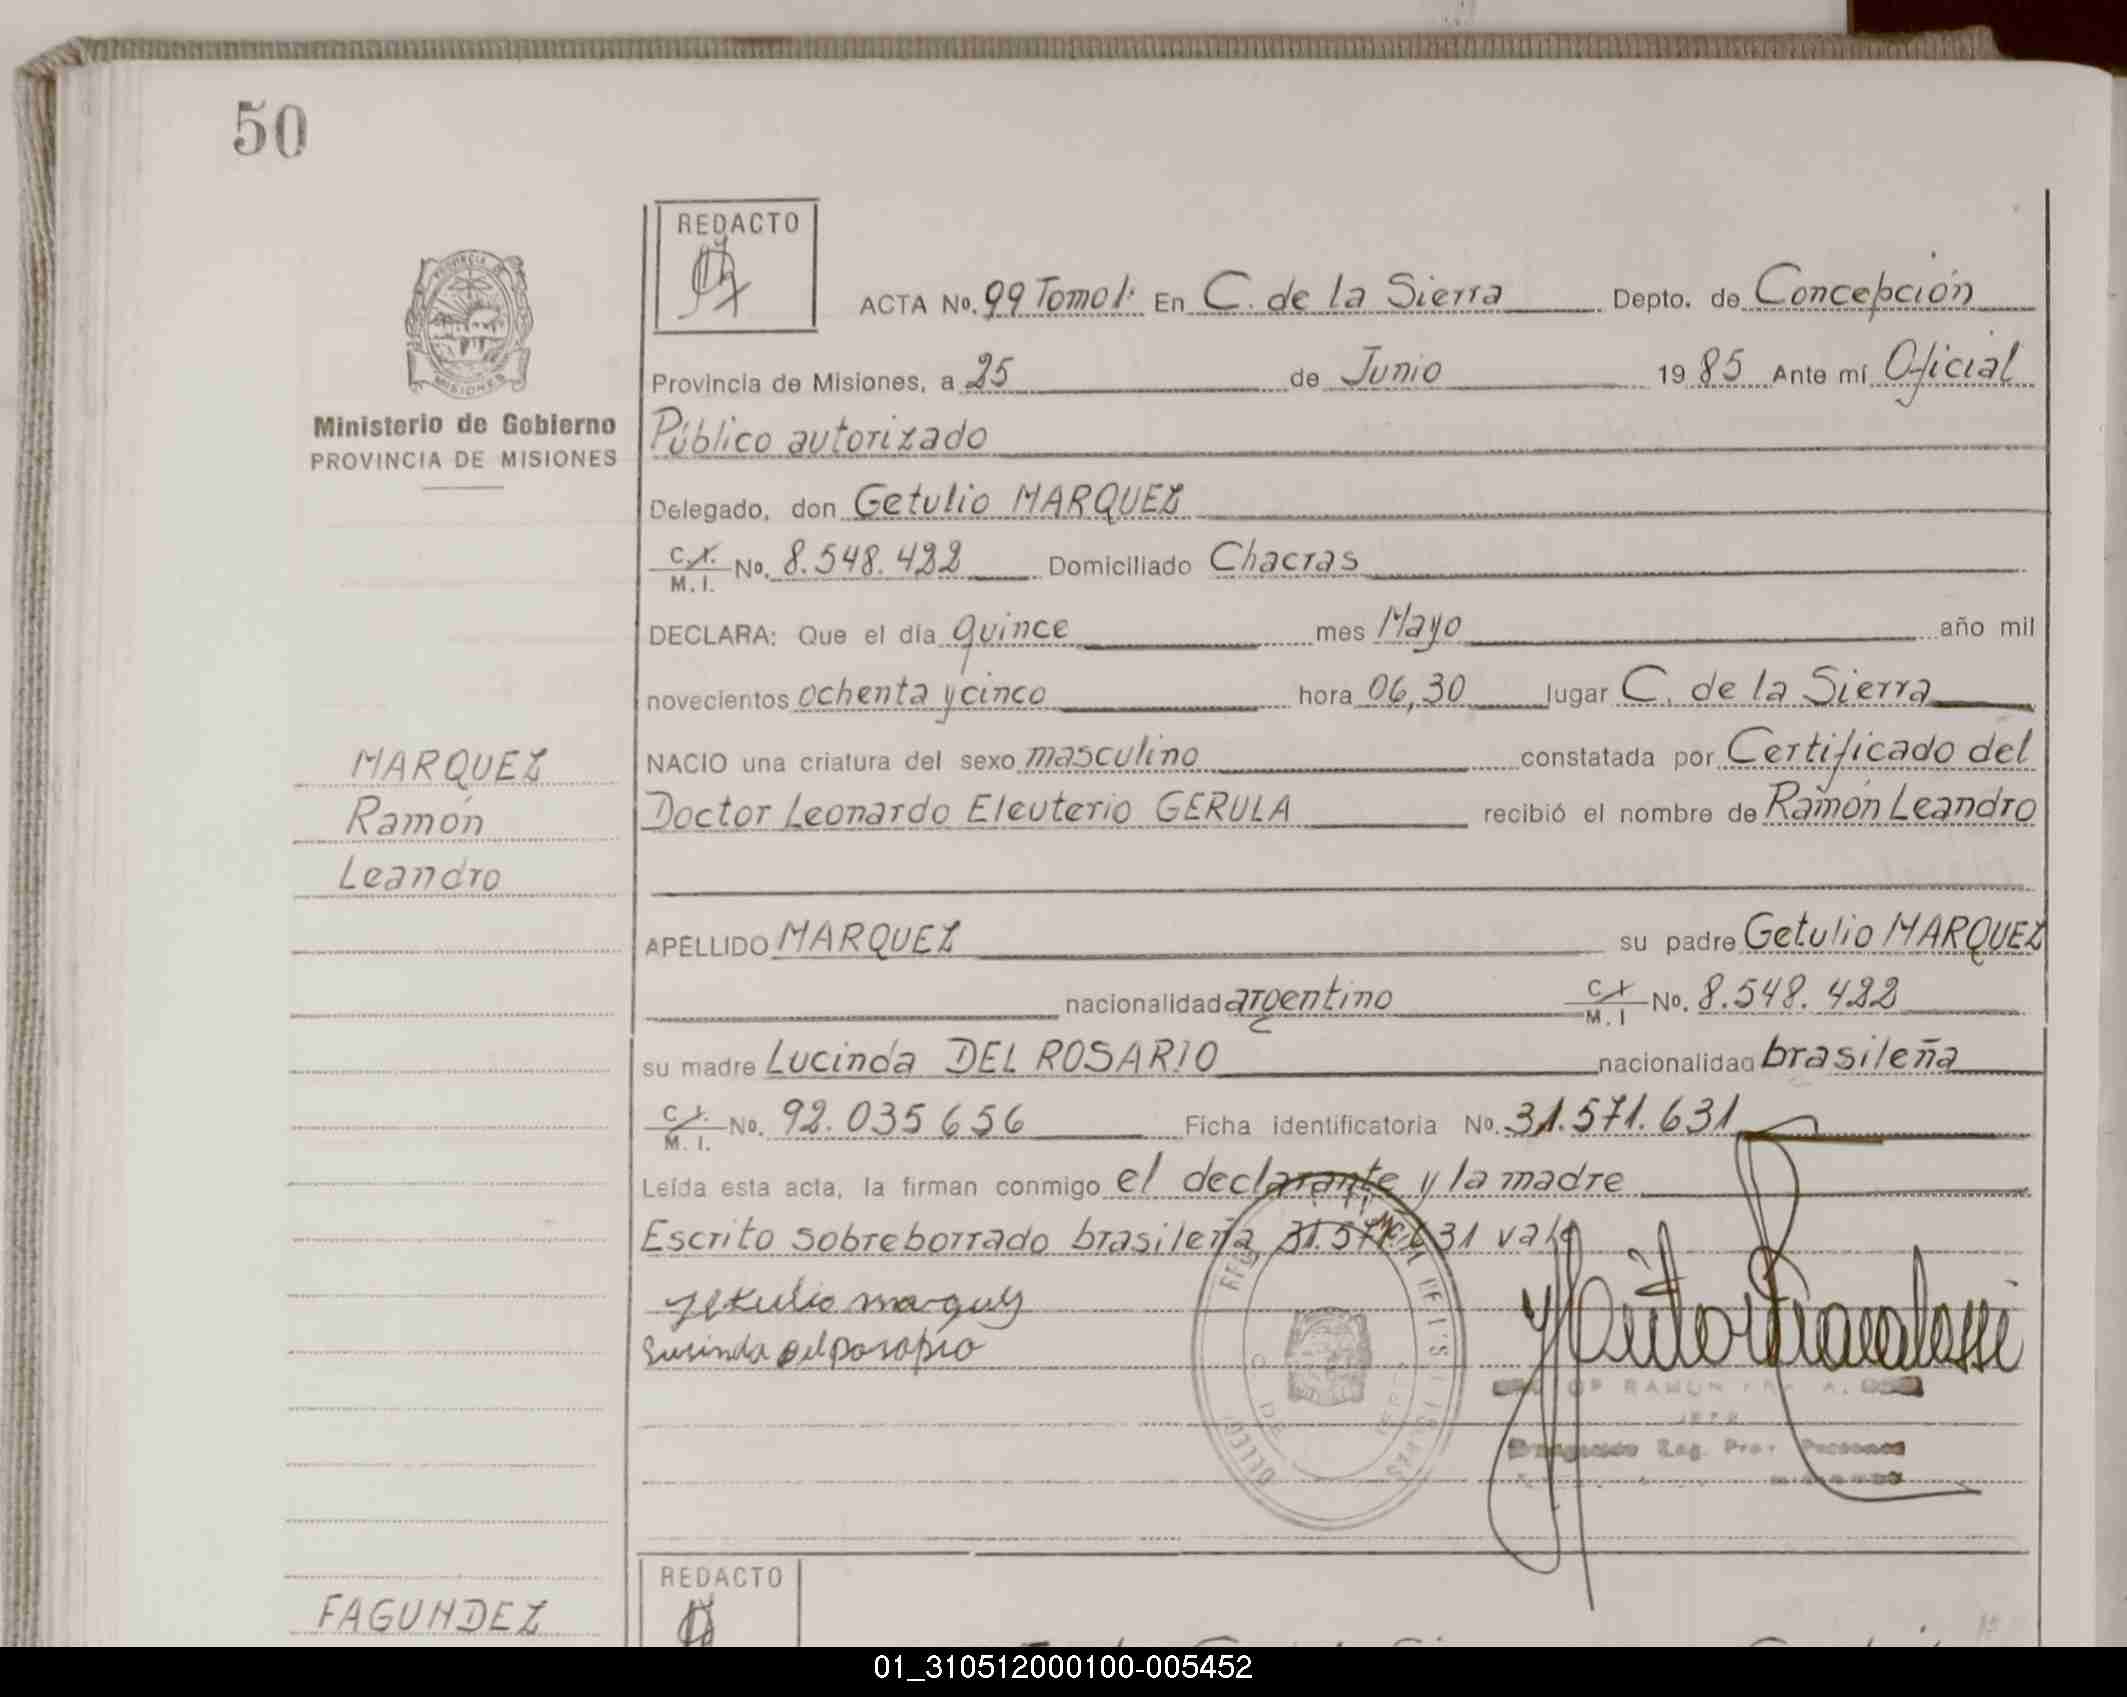 50
REDACTO
ACTA No. 99 Tomo 1: En C. de la Sierra Depto. de Concepción
Provincia de Misiones, a 25 de Junio 1985 Ante mí Oficial
Ministerio de Gobierno
PROVINCIA DE MISIONES
Público autorizado
Delegado, don Getulio MARQUEZ
C.I. M.I. No. 8.548.422 Domiciliado Chacras
DECLARA: Que el día quince mes Mayo año mil
novecientos ochenta y cinco hora 06,30 lugar C. de la Sierra
MARQUEZ
Ramón
Leandro
NACIO una criatura del sexo masculino constatada por Certificado del
Doctor Leonardo Eleuterio GERULA recibió el nombre de Ramón Leandro
APELLIDO MARQUEZ su padre Getulio MARQUEZ
nacionalidad argentino C.I. M.I No. 8.548.422
su madre Lucinda DEL ROSARIO nacionalidad brasileña
C.I. M.I. No. 92.035656 Ficha identificatoria No. 31.571.631
Leída esta acta, la firman conmigo el declarante y la madre
Escrito sobreborrado brasileña 31.571.631 vale
Getulio marquez
Lusinda del Rosario
Reg. Prov. Personas
REDACTO
FAGUNDEZ
01_310512000100-005452